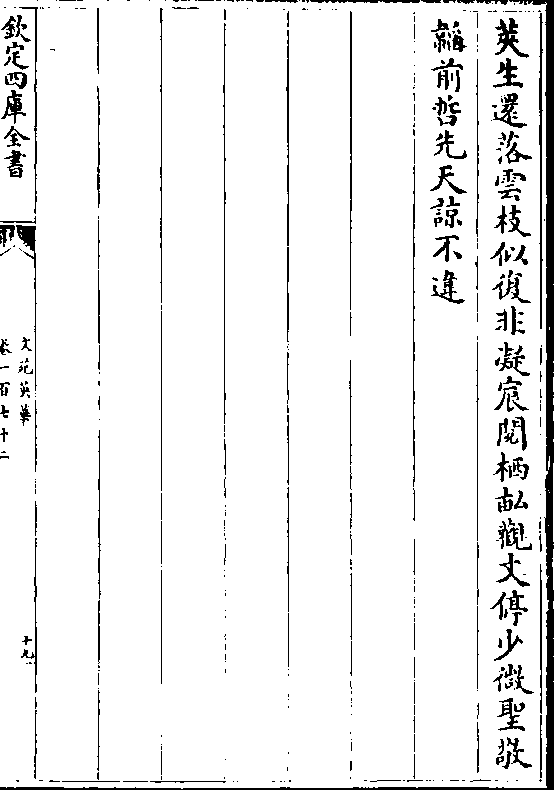 莢生還落雲枝似復非凝宸閱栖畆觀文停少微聖敬
韜前哲先天諒不違
欽定四庫全書
文苑英華
卷一百七十二
十九